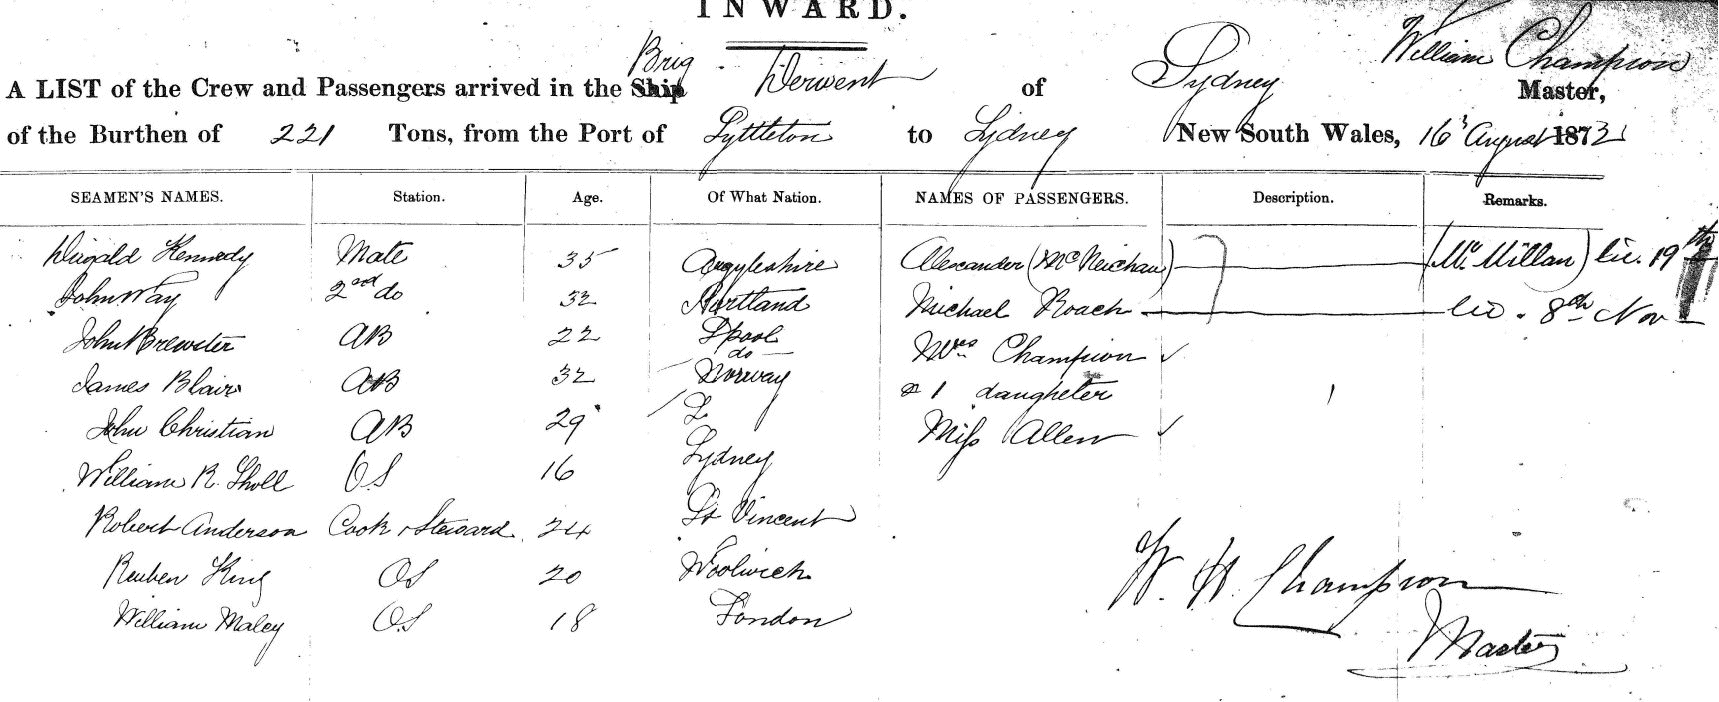 INWARD.
A LIST of the Crew and Passengers arrived in the Ship Brig Derwent of Sydney William Champion Master,
of the Burthen of 221 Tons, from the Port of Lyttleton to Sydney New South Wales, 16 August 1873
SEAMEN'S NAMES. Station. Age. Of What Nation. NAMES OF PASSENGERS. Description. Remarks.
Dugald Kennedy Mate 35 Argyleshire Alexander (McNeichau) (McMillan) lic. 19th
John Way 2nd do 32 Portland Michael Roach lic. 8th Nov
John Brewster AB 22 Lpool Mrs Champion ✓
do
James Blair AB 32 Norway & 1 daugheter 1
John Christian AB 29 Miss Allen ✓
William R. Sholl OS 16 Sydney
Robert Anderson Cook & Steward 24 St Vincent
Reuben King OS 20 Woolwich
William Maley OS 18 London
W. H. Champion
Master